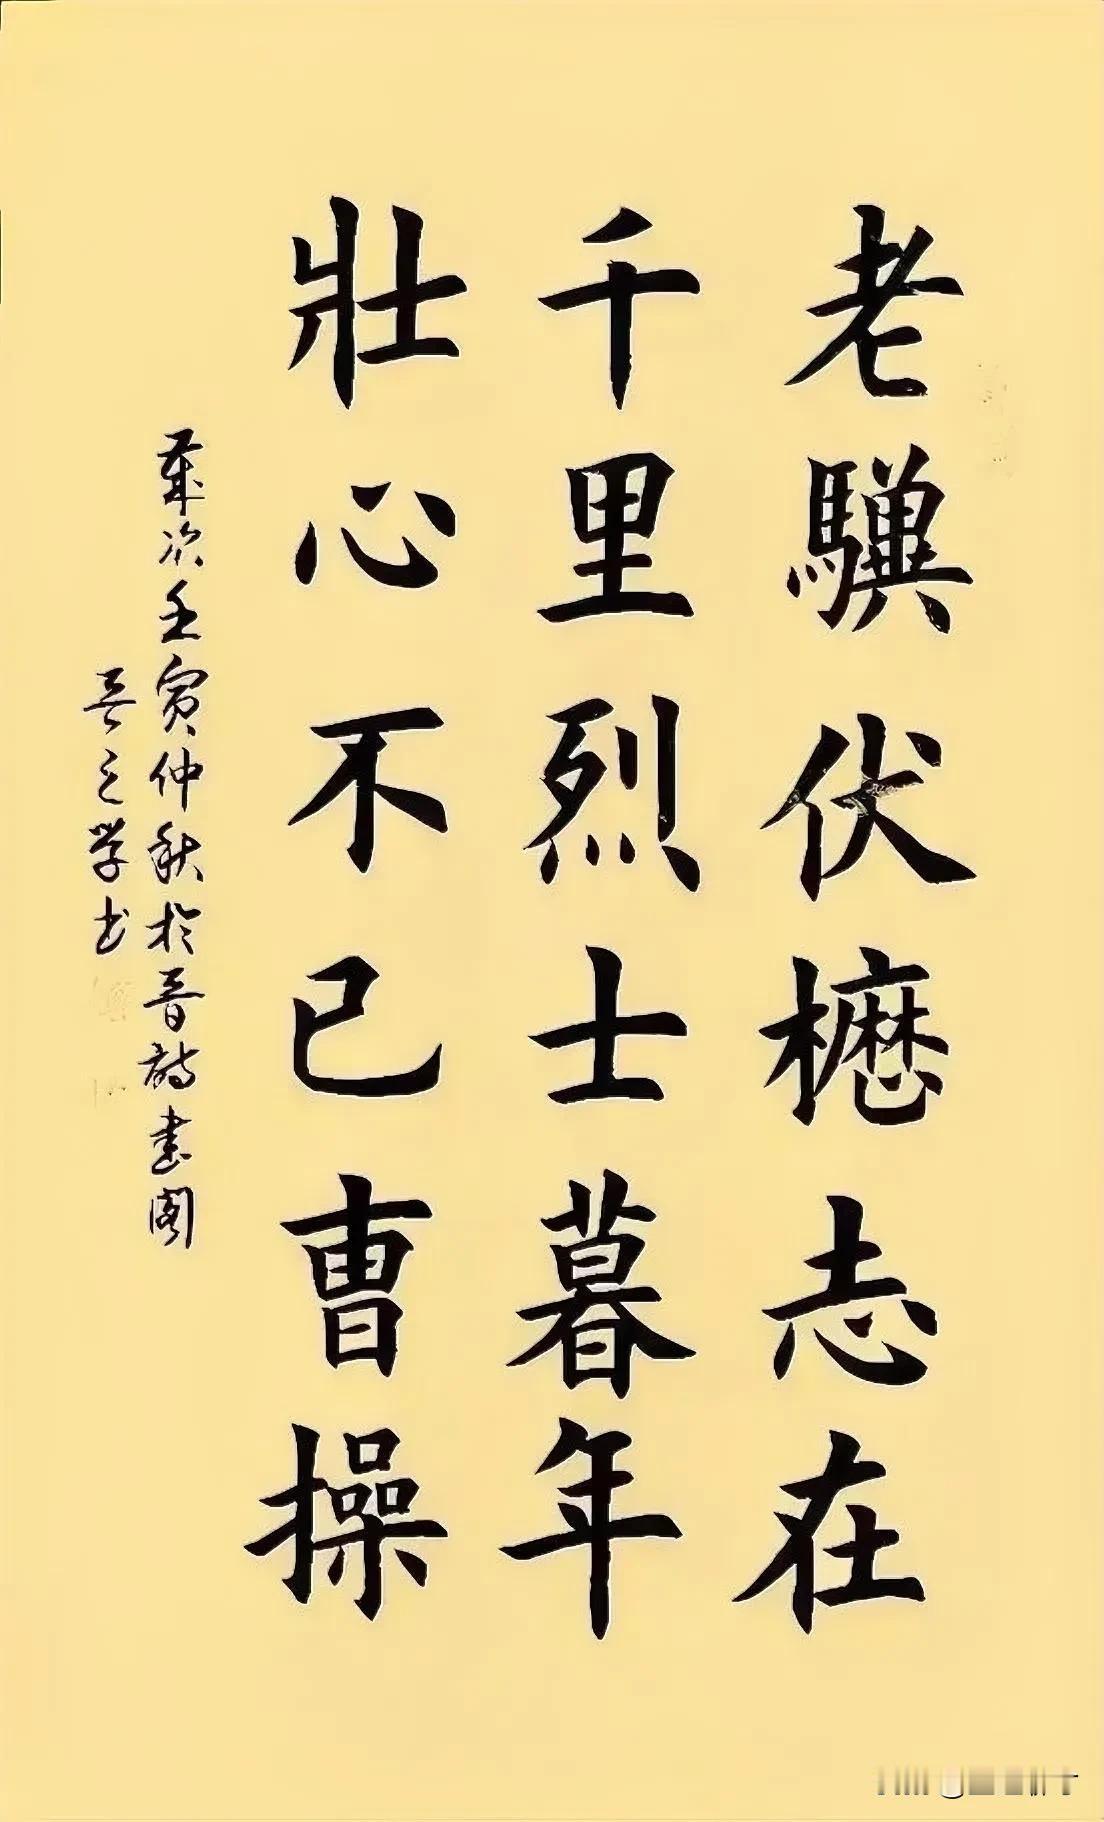 老驥伏櫪志在
千里烈士暮年
壯心不已曹操
歲次壬寅仲秋於晉詩書閣
之學書